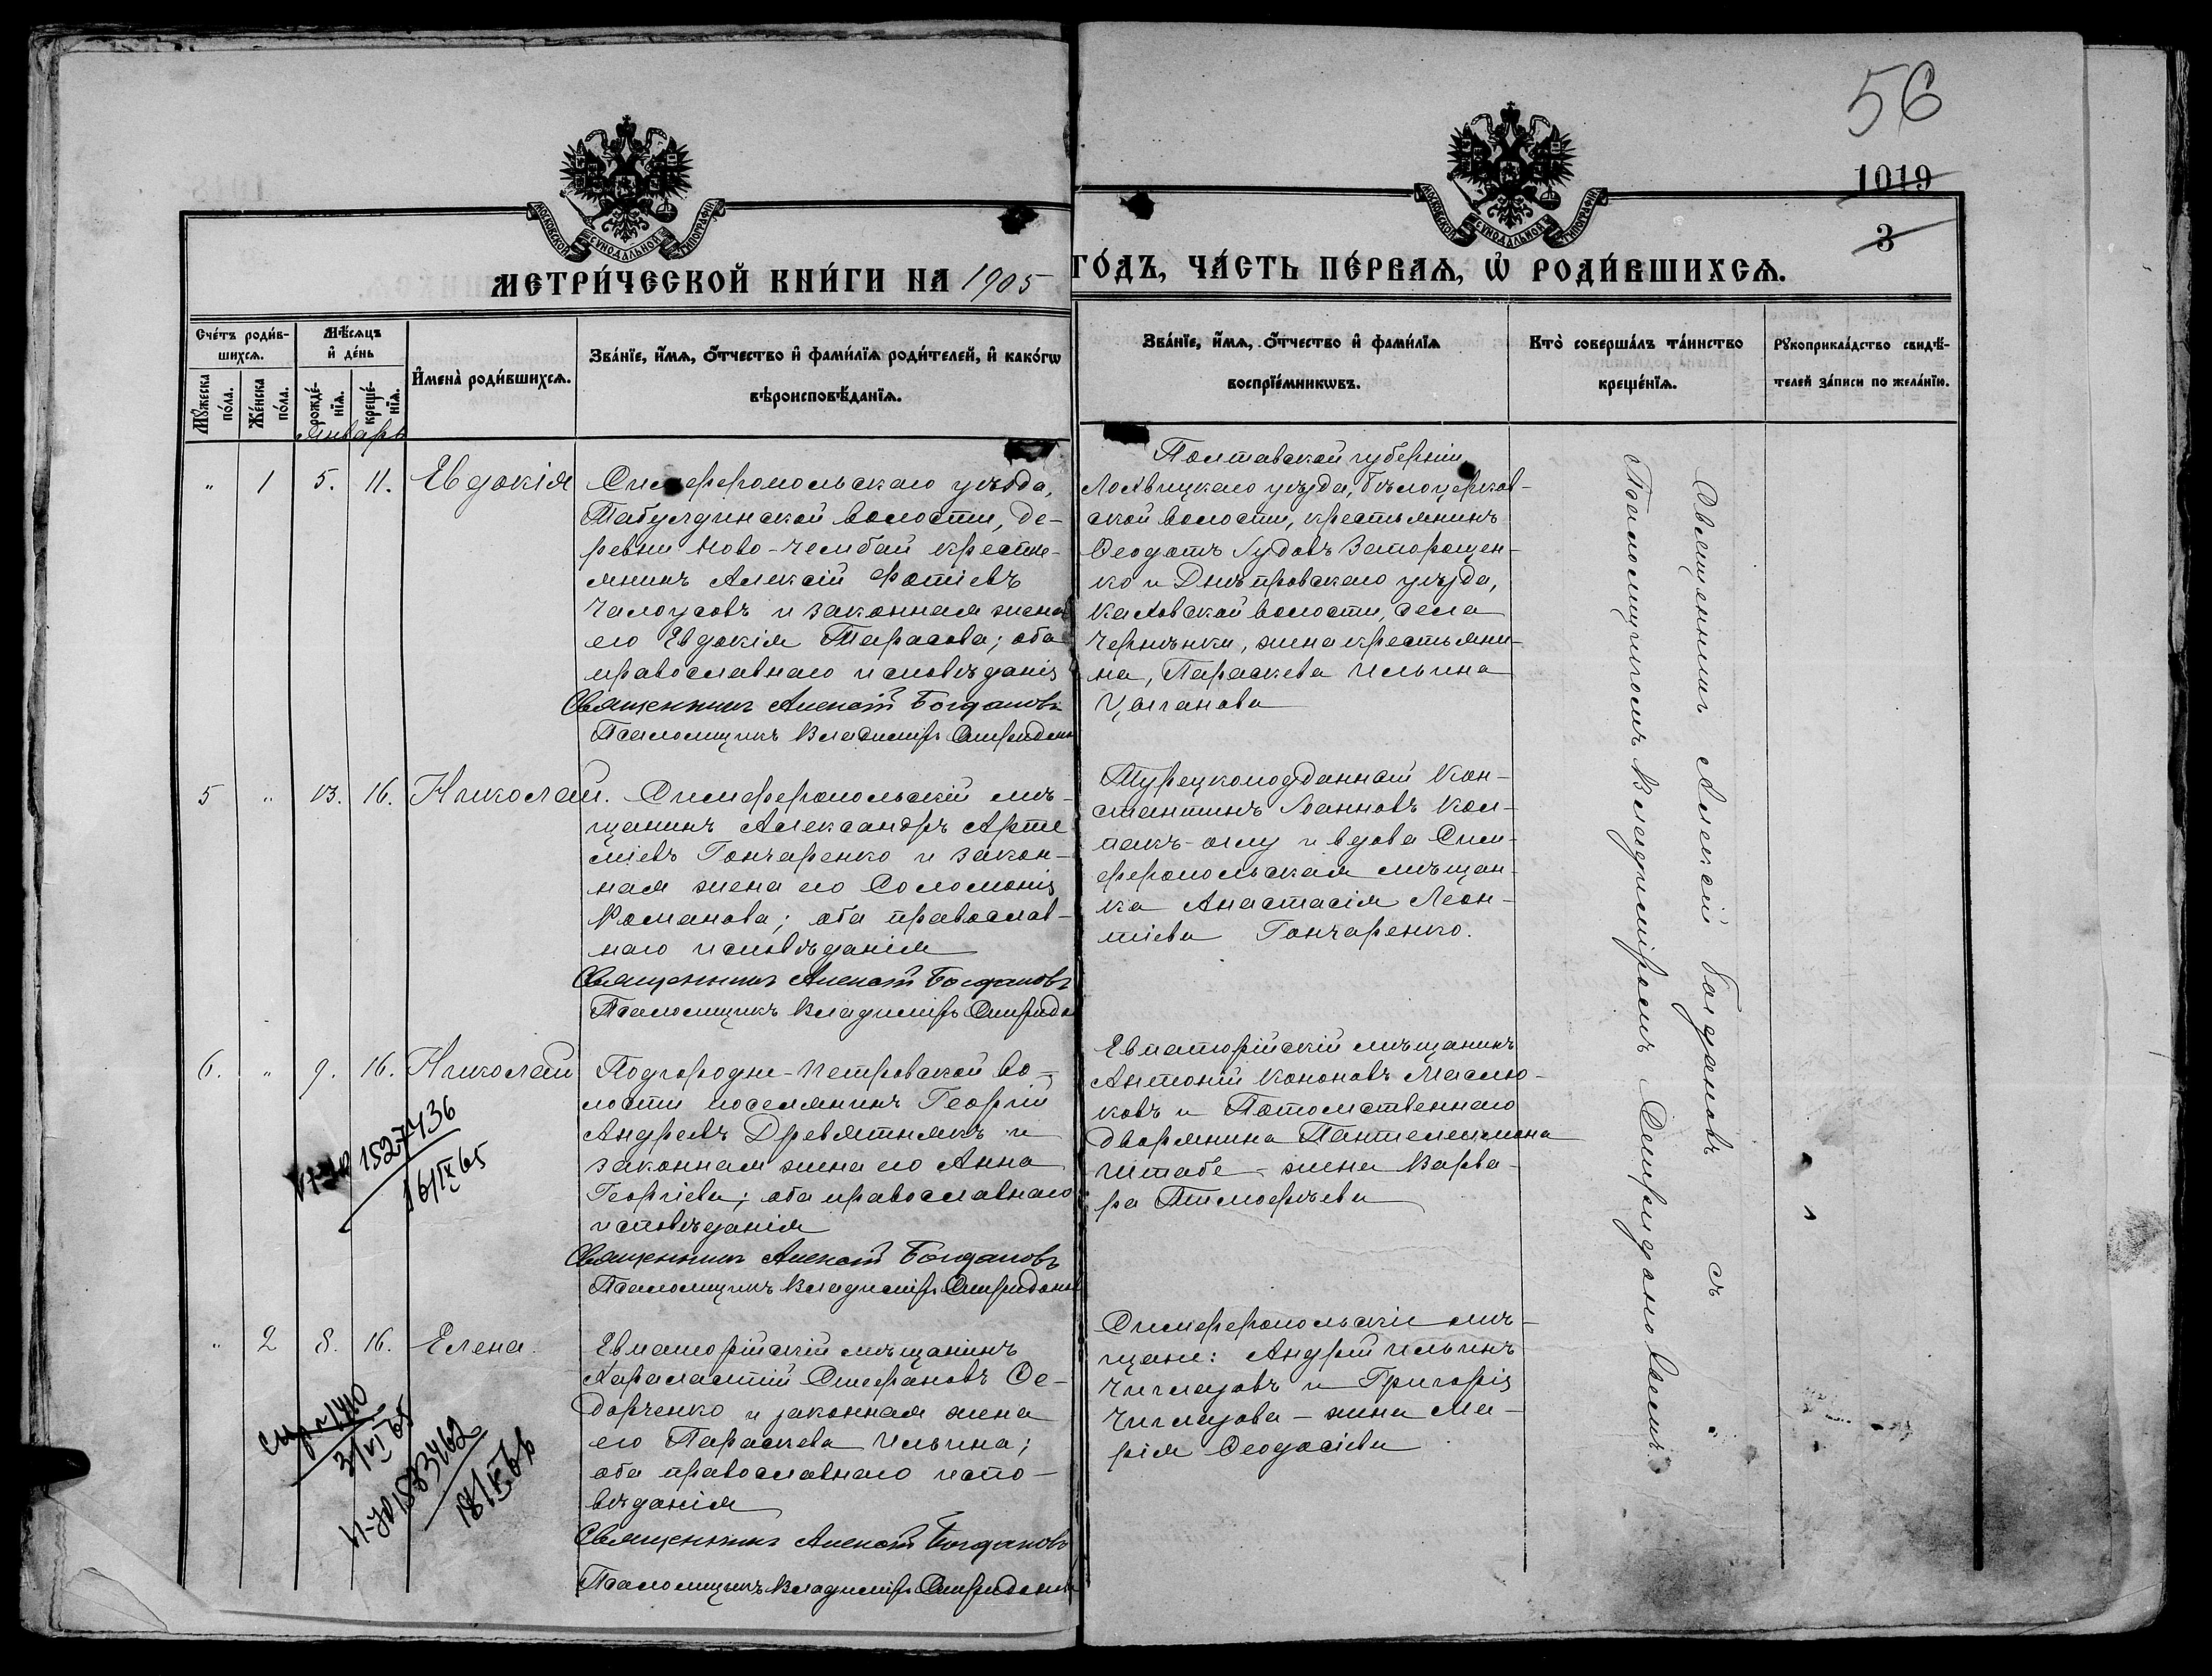 56
1019
3
МОСКОВСКОЙ СѴНОДАЛЬНОЙ ТИПОГРАФІИ
МОСКОВСКОЙ СѴНОДАЛЬНОЙ ТИПОГРАФІИ
МЕТРИ́ЧЕСКОЙ КНИ́ГИ НА 1905 ГО́ДЪ, ЧА́СТЬ ПЕ́РВАѦ, Ѡ҆ РОДИ́ВШИХСѦ.
Сче́тъ роди́в-
шихсѧ.
Мꙋжеска по́ла.
Же́нска по́ла.
Мѣ́сѧцъ и҆ де́нь
рожде́-нїѧ.
креще́-нїѧ.
И҆мена̀ роди́вшихсѧ.
Зва́нїе, и҆́мѧ, ѻ҆́тчество и҆ фами́лїѧ роди́телей, и҆ како́гѡ
вѣроисповѣ́данїѧ.
Зва́нїе, и҆́мѧ, ѻ҆́тчество и҆ фами́лїѧ
воспрїе́мникѡвъ.
Кто̀ соверша́лъ та́инство
креще́нїѧ.
Рꙋкоприкла́дство свидѣ́-
телей за́писи по жела́нїю.
Январь
" 1 5. 11. Евдокія
Симферопольскаго уѣзда,
Табулдинской волости, де-
ревни Ново-Челибай крестья-
янинъ Алексій Фотіевъ
Чалоусовъ и законная жена
его Евдокія Тарасова; оба
православнаго исповѣданія
Священникъ Алексій Богдановъ
Псаломщикъ Владиміръ Спиридонов
Полтавской губерніи
Лохвицкаго уѣзда, Бѣлоцерков-
ской волости, крестьянинъ
Ѳеодотъ Іудовъ Запорощен-
ко и Днѣпровскаго уѣзда,
Каховской волости, села
Чернянки, жена крестьяни-
на, Параскева Ильина
Цыганова
5 " 13. 16. Николай.
Симферопольскій мѣ-
щанинъ Александръ Арте-
міевъ Гончаренко и закон-
ная жена его Соломонія
Романова; оба православ-
наго исповѣданія
Священникъ Алексій Богдановъ
Псаломщикъ Владиміръ Спиридо
Турецкоподданный Кон-
стантинъ Іоанновъ Кол-
пакъ-оглу и вдова Сим-
феропольская мѣщан-
ка Анастасія Леон-
тіева Гончаренко.
6. " 9. 16. Николай
Подгородне-Петровской во-
лости поселянинъ Георгій
Андреевъ Древятнякъ и
законная жена его Анна
Георгіева; оба православнаго
исповѣданія
Священникъ Алексій Богдановъ
Псаломщикъ Владиміръ Спиридонов
1527436
16/IX 65
Евпаторійскій мѣщанинъ
Антоній Кононовъ Маслю-
ковъ и Потомственнаго
дворянина Пантелеимона
Штабе - жена Варва-
ра Тимофѣева
" 2 8. 16. Елена.
Евпаторійскій мѣщанинъ
Харлампій Стефановъ Ѳе-
дорченко и законная жена
его Параскева Ильина;
оба православнаго испо-
вѣданія
Священникъ Алексій Богдановъ
Псаломщикъ Владиміръ Спиридонов
3/VI 65
18/IX 66
Симферопольскіе мѣ-
щане: Андрей Ильинъ
Чиглазовъ и Григорія
Чиглазова - жена Ма-
рія Ѳеодосіева
Священникъ Алексій Богдановъ съ
Псаломщикомъ Владиміромъ Спиридоновымъ